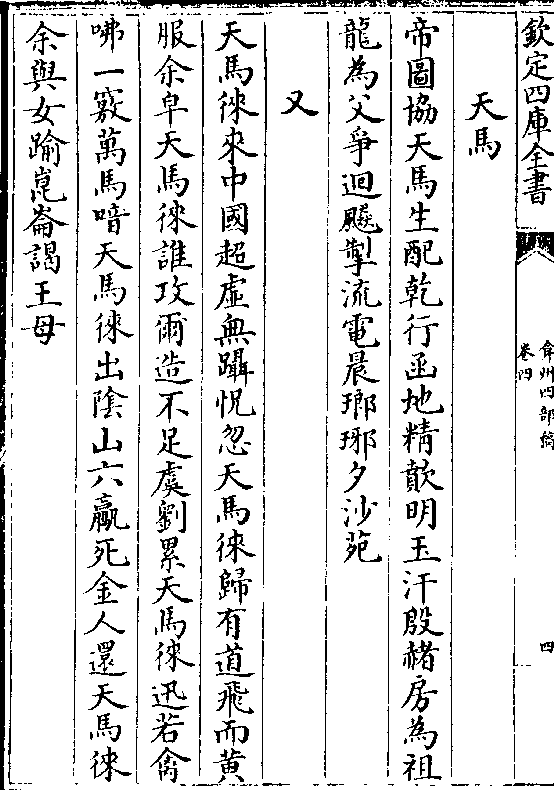 欽定四庫全書
弇州四部稿
卷四
四
天馬
帝圖協天馬生配乾行函地精歕明玉汗殷赭房為祖
龍為父爭迴飇掣流電晨瑯琊夕沙苑
又
天馬徠來中國超虛無躡怳忽天馬徠歸有道飛而黃
服余皁天馬徠誰攻爾造不足虞劉累天馬徠迅若禽
咈一竅萬馬喑天馬徠出隂山六驘死金人還天馬徠
余與女踰崑崙謁王母